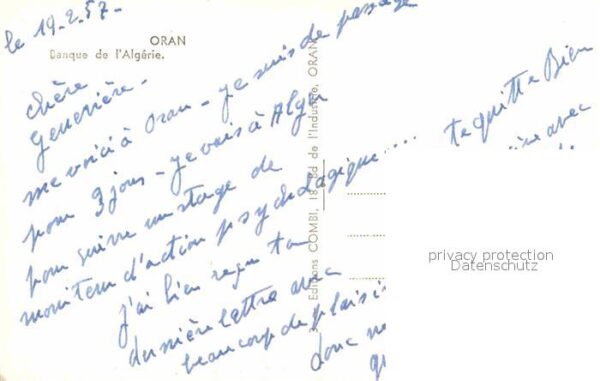 le 19.2.57.
ORAN
Banque de l'Algérie.
chère
Geneviève.
me voici à Oran - je suis de passage
pour 3 jours - je vais à Alger
pour suivre un stage de
moniteur d'action psychologique...
j'ai bien reçu ta
dernière lettre avec
beaucoup de plaisi
donc
te quitte Bien
avec
Editions COMBI, 18, Bd de l'Industrie, ORAN
privacy protection
Datenschutz